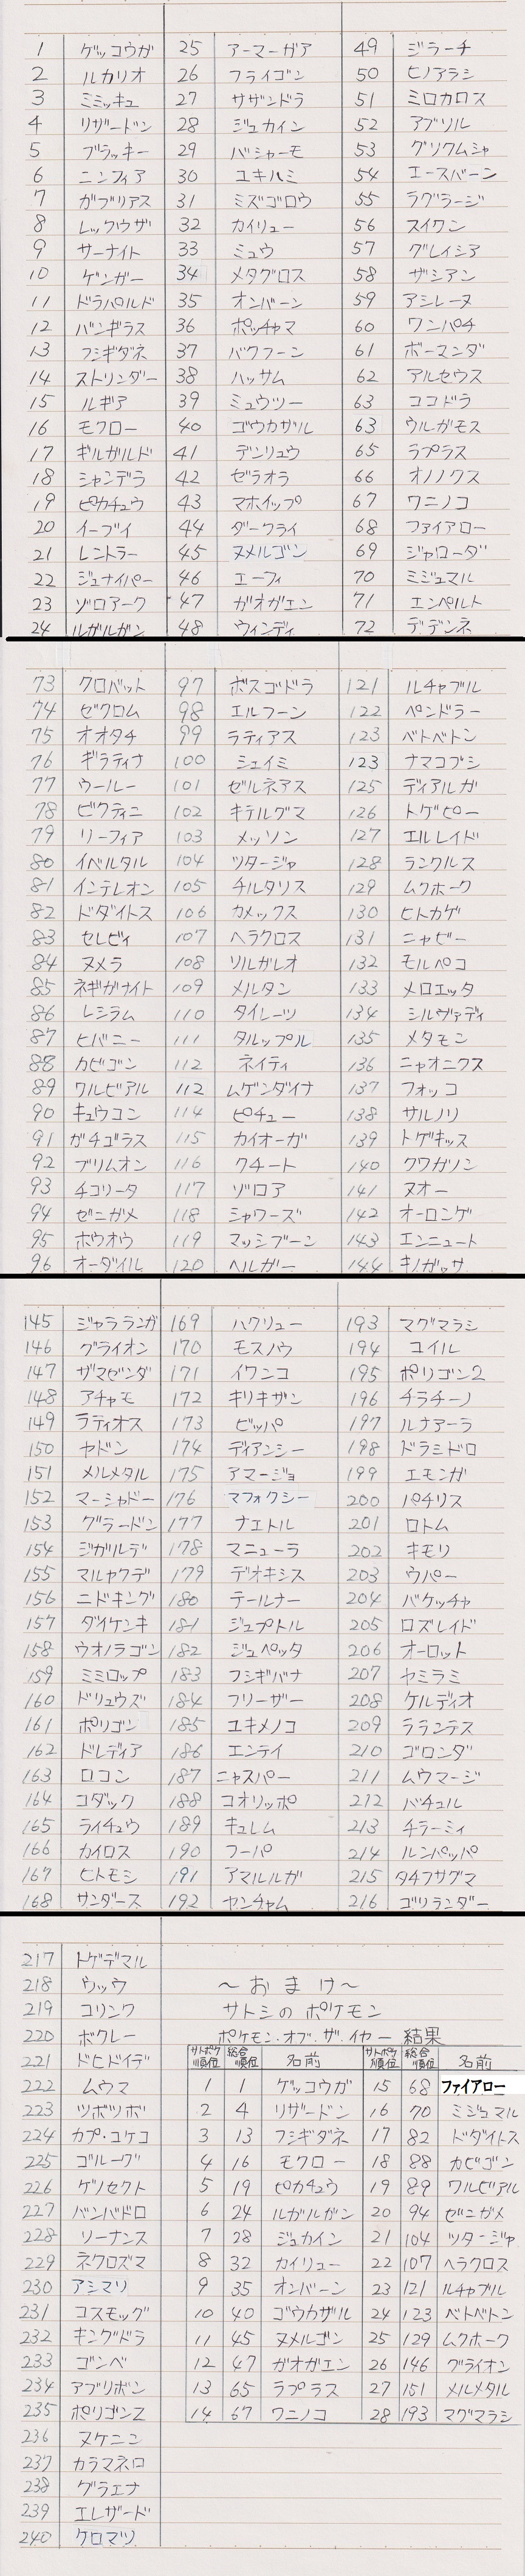 1 ゲッコウガ 25 アーマーガア 49 ジラーチ
2 ルカリオ 26 フライゴン 50 ヒノアラシ
3 ミミッキュ 27 サザンドラ 51 ミロカロス
4 リザードン 28 ジュカイン 52 アブソル
5 ブラッキー 29 バシャーモ 53 グソクムシャ
6 ニンフィア 30 ユキハミ 54 エースバーン
7 ガブリアス 31 ミズゴロウ 55 ラグラージ
8 レックウザ 32 カイリュー 56 スイクン
9 サーナイト 33 ミュウ 57 グレイシア
10 ゲンガー 34 メタグロス 58 ザシアン
11 ドラパルド 35 オンバーン 59 アシレーヌ
12 バンギラス 36 ポッチャマ 60 ワンパチ
13 フシギダネ 37 バクフーン 61 ボーマンダ
14 ストリンダー 38 ハッサム 62 アルセウス
15 ルギア 39 ミュウツー 63 ココドラ
16 モクロー 40 ゴウカザル 63 ウルガモス
17 ギルガルド 41 デンリュウ 65 ラプラス
18 シャンデラ 42 ゼラオラ 66 オノノクス
19 ピカチュウ 43 マホイップ 67 ワニノコ
20 イーブイ 44 ダークライ 68 ファイアロー
21 レントラー 45 ヌメルゴン 69 ジャローダ
22 ジュナイパー 46 エーフィ 70 ミジュマル
23 ゾロアーク 47 ガオガエン 71 エンペルト
24 ルガルガン 48 ウィンディ 72 デデンネ
73 クロバット 97 ボスゴドラ 121 ルチャブル
74 ゼクロム 98 エルフーン 122 ペンドラー
75 オオタチ 99 ラティアス 123 ベトベトン
76 ギラティナ 100 シェイミ 123 ナマコブシ
77 ウールー 101 ゼルネアス 125 ディアルガ
78 ビクティニ 102 キテルグマ 126 トゲピー
79 リーフィア 103 メッソン 127 エルレイド
80 イベルタル 104 ツタージャ 128 ランクルス
81 インテレオン 105 チルタリス 129 ムクホーク
82 ドダイトス 106 カメックス 130 ヒトカゲ
83 セレビィ 107 ヘラクロス 131 ニャビー
84 ヌメラ 108 ソルガレオ 132 モルペコ
85 ネギガナイト 109 メルタン 133 メロエッタ
86 レシラム 110 タイレーツ 134 シルヴァディ
87 ヒバニー 111 タルップル 135 メタモン
88 カビゴン 112 ネイティ 136 ニャオニクス
89 ワルビアル 112 ムゲンダイナ 137 フォッコ
90 キュウコン 114 ピチュー 138 サルノリ
91 ガチゴラス 115 カイオーガ 139 トゲキッス
92 ブリムオン 116 クチート 140 クワガノン
93 チコリータ 117 ゾロア 141 ヌオー
94 ゼニガメ 118 シャワーズ 142 オーロンゲ
95 ホウオウ 119 マッシブーン 143 エンニュート
96 オーダイル 120 ヘルガー 144 キノガッサ
145 ジャラランガ 169 ハクリュー 193 マグマラシ
146 グライオン 170 モスノウ 194 コイル
147 ザマゼンタ 171 イワンコ 195 ポリゴン2
148 アチャモ 172 キリキザン 196 チラチーノ
149 ラティオス 173 ビッパ 197 ルナアーラ
150 ヤドン 174 ディアンシー 198 ドラミドロ
151 メルメタル 175 アマージョ 199 エモンガ
152 マーシャドー 176 マフォクシー 200 パチリス
153 グラードン 177 ナエトル 201 ロトム
154 ジガルデ 178 マニューラ 202 キモリ
155 マルヤクデ 179 デオキシス 203 ウパー
156 ニドキング 180 テールナー 204 バケッチャ
157 ダイケンキ 181 ジュプトル 205 ロズレイド
158 ウオノラゴン 182 ジュペッタ 206 オーロット
159 ミミロップ 183 フシギバナ 207 ヤミラミ
160 ドリュウズ 184 フリーザー 208 ケルディオ
161 ポリゴン 185 ユキメノコ 209 ラランテス
162 ドレディア 186 エンテイ 210 ゴロンダ
163 ロコン 187 ニャスパー 211 ムウマージ
164 コダック 188 コオリッポ 212 バチュル
165 ライチュウ 189 キュレム 213 チラーミィ
166 カイロス 190 フーパ 214 ルンパッパ
167 ヒトモシ 191 アマルルガ 215 タチフサグマ
168 サンダース 192 ヤンチャム 216 ゴリランダー
217 トゲデマル
218 ウッウ ～おまけ～
219 コリンク サトシのポケモン
220 ボクレー ポケモン・オブ・ザ・イヤー結果
221 ドヒドイデ サトポケ順位 総合順位 名前 サトポケ順位 総合順位 名前
222 ムウマ 1 1 ゲッコウガ 15 68 ファイアロー
223 ツボツボ 2 4 リザードン 16 70 ミジュマル
224 カプ・コケコ 3 13 フシギダネ 17 82 ドダイトス
225 ゴルーグ 4 16 モクロー 18 88 カビゴン
226 ゲノセクト 5 19 ピカチュウ 19 89 ワルビアル
227 バンバドロ 6 24 ルガルガン 20 94 ゼニガメ
228 ソーナンス 7 28 ジュカイン 21 104 ツタージャ
229 ネクロズマ 8 32 カイリュー 22 107 ヘラクロス
230 アシマリ 9 35 オンバーン 23 121 ルチャブル
231 コスモッグ 10 40 ゴウカザル 24 123 ベトベトン
232 キングドラ 11 45 ヌメルゴン 25 129 ムクホーク
233 ゴンベ 12 47 ガオガエン 26 146 グライオン
234 アブリボン 13 65 ラプラス 27 151 メルメタル
235 ポリゴンZ 14 67 ワニノコ 28 193 マグマラシ
236 ヌケニン
237 カラマネロ
238 グラエナ
239 エレザード
240 ケロマツ